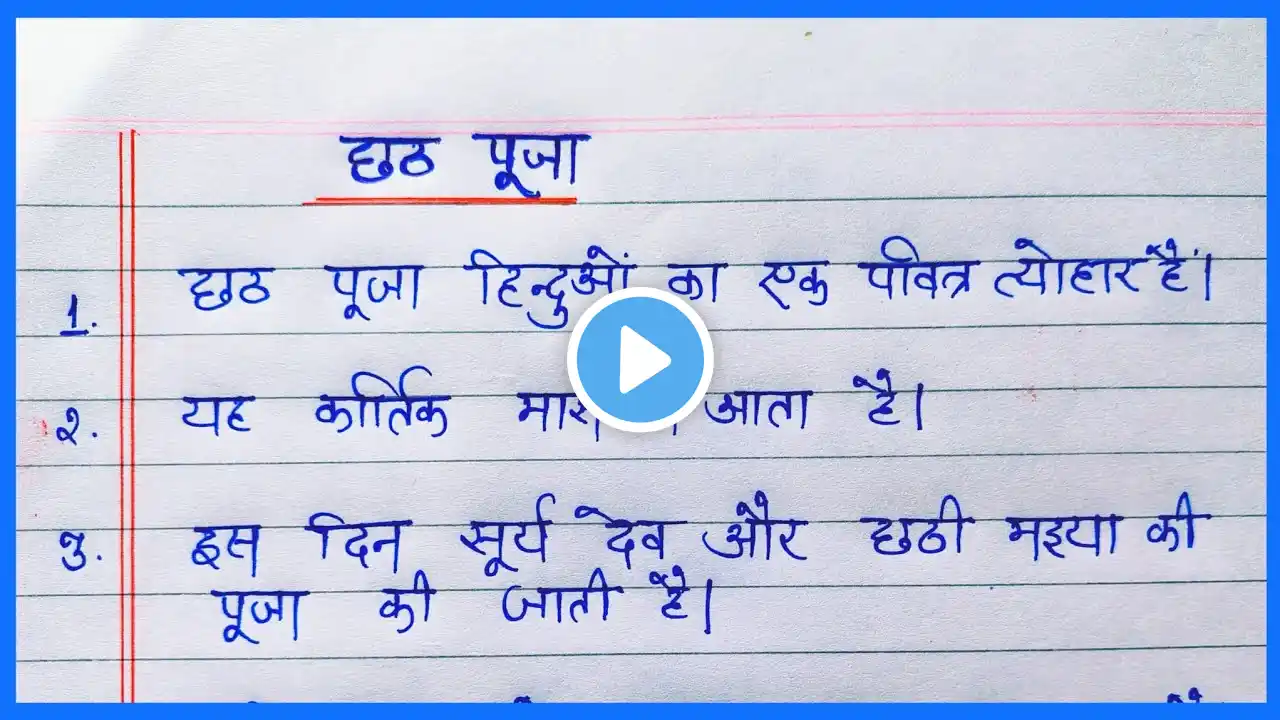 छठ पूजा
1. छठ पूजा हिन्दुओं का एक पवित्र त्योहार हैं।
२. यह कार्तिक आता है।
३. इस दिन सूर्य देव और छठी मइया की
पूजा की जाती है।